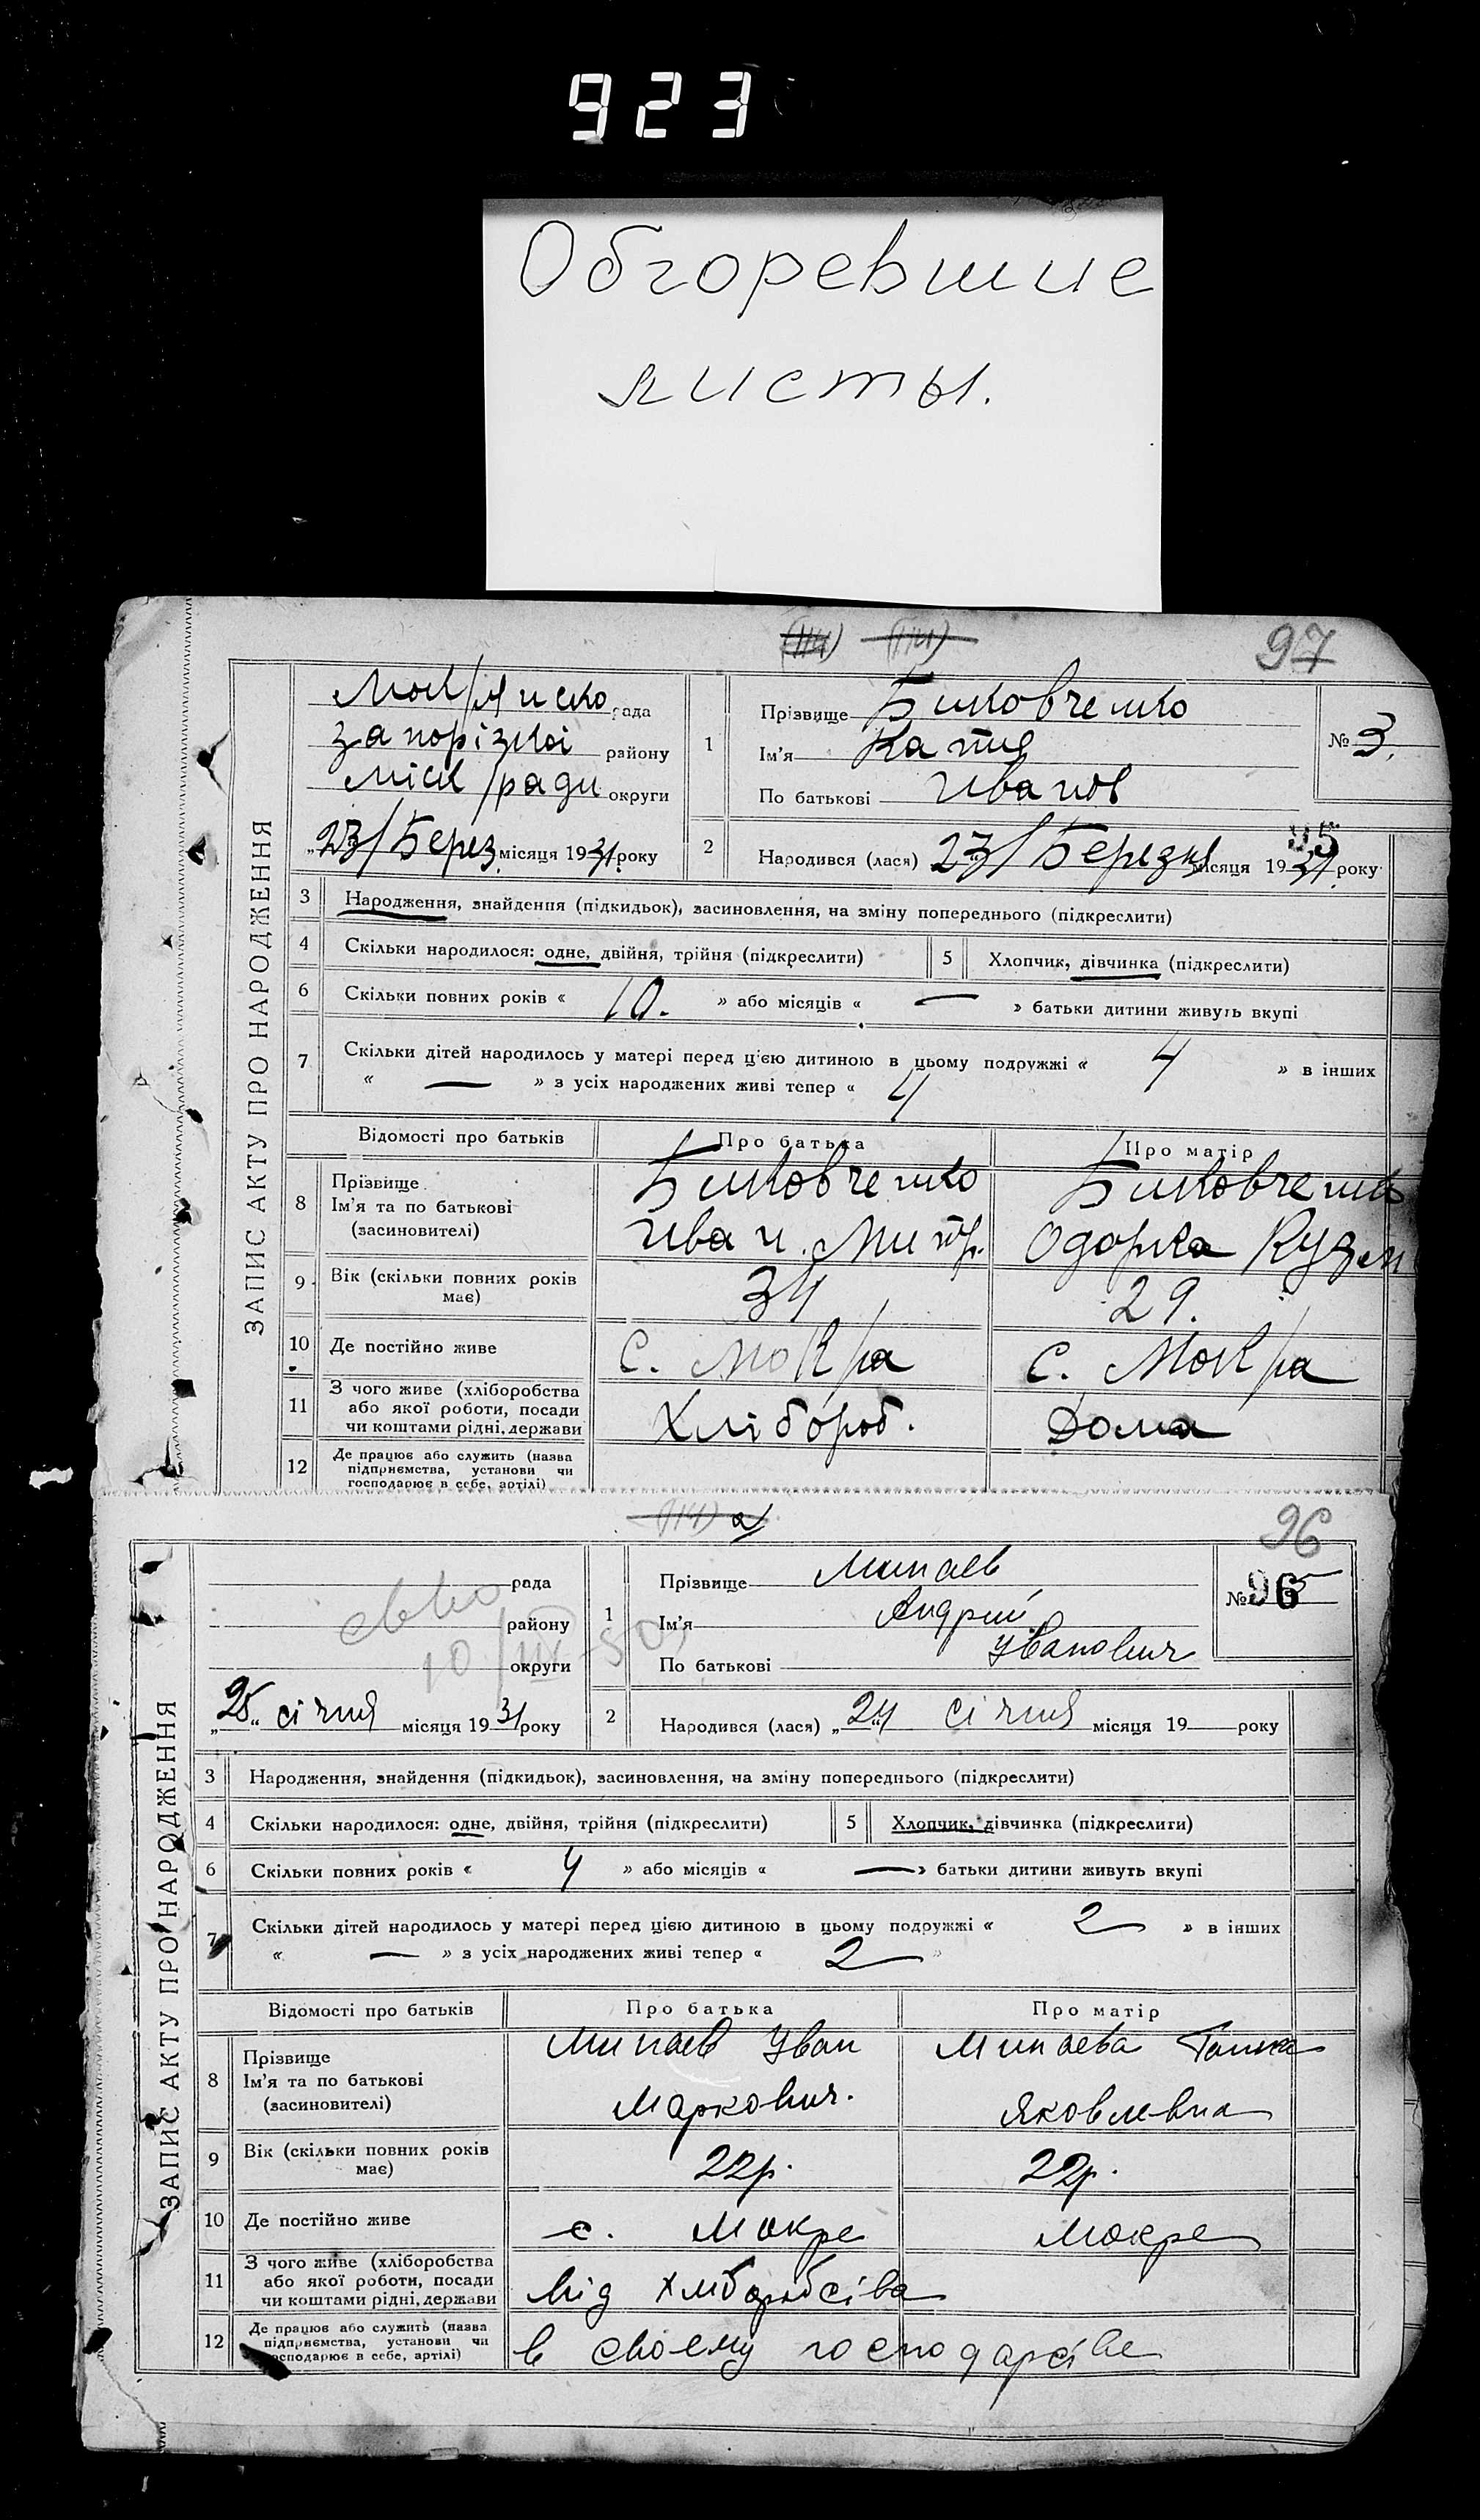 923
Обгоревшие
листы.
(114) (114) 97
ЗАПИС АКТУ ПРО НАРОДЖЕННЯ
Мокрянско рада
Запорізкої району
Міск/ради округи
„23/Берез. місяця 1931 року
1 Прізвище Биковченко
Ім'я Катя
По батькові Иванов
№ 3.
95
2 Народився (лася) 23/Березня місяця 1931 року
3 Народження, знайдення (підкидьок), засиновлення, на зміну попереднього (підкреслити)
4 Скільки народилося: одне, двійня, трійня (підкреслити) 5 Хлопчик, дівчинка (підкреслити)
6 Скільки повних років « 10. » або місяців « — » батьки дитини живуть вкупі
7 Скільки дітей народилось у матері перед цією дитиною в цьому подружжі « 4 » в інших
« — » з усіх народжених живі тепер « 4
Відомості про батьків Про батька Про матір
8 Прізвище
Ім'я та по батькові
(засновителі)
Биковченко
Иван. Митр.
Биковченко
Одарка Кузьм
9 Вік (скільки повних років
має)
34 29.
10 Де постійно живе с. Мокра с. Мокра
11 З чого живе (хліборобства
або якої роботи, посади
чи коштами рідні, держави
Хлібороб. Дома
12 Де працює або служить (назва
підприємства, установи чи
господарює в себе, артілі)
(114) а) 96
ЗАПИС АКТУ ПРО НАРОДЖЕННЯ
рада
району
округи
„25“ січня місяця 1931 року
1 Прізвище Минаев
Ім'я Андрий
По батькові Иванович
№ 96
2 Народився (лася) „24“ січня місяця 19 року
3 Народження, знайдення (підкидьок), засиновлення, на зміну попереднього (підкреслити)
4 Скільки народилося: одне, двійня, трійня (підкреслити) 5 Хлопчик, дівчинка (підкреслити)
6 Скільки повних років « 4 » або місяців « — » батьки дитини живуть вкупі
7 Скільки дітей народилось у матері перед цією дитиною в цьому подружжі « 2 » в інших
« — » з усіх народжених живі тепер « 2 »
Відомості про батьків Про батька Про матір
8 Прізвище
Ім'я та по батькові
(засиновителі)
Минаев Иван
Маркович.
Минаева Ганна
Яковлевна
9 Вік (скільки повних років
має)
22р. 22р.
10 Де постійно живе с. Мокре Мокре
11 З чого живе (хліборобства
або якої роботи, посади
чи коштами рідні, держави
від хліборобсіва
12 Де працює або служить (назва
підприємства, установи чи
господарює в себе, артілі)
в своему господарсіве